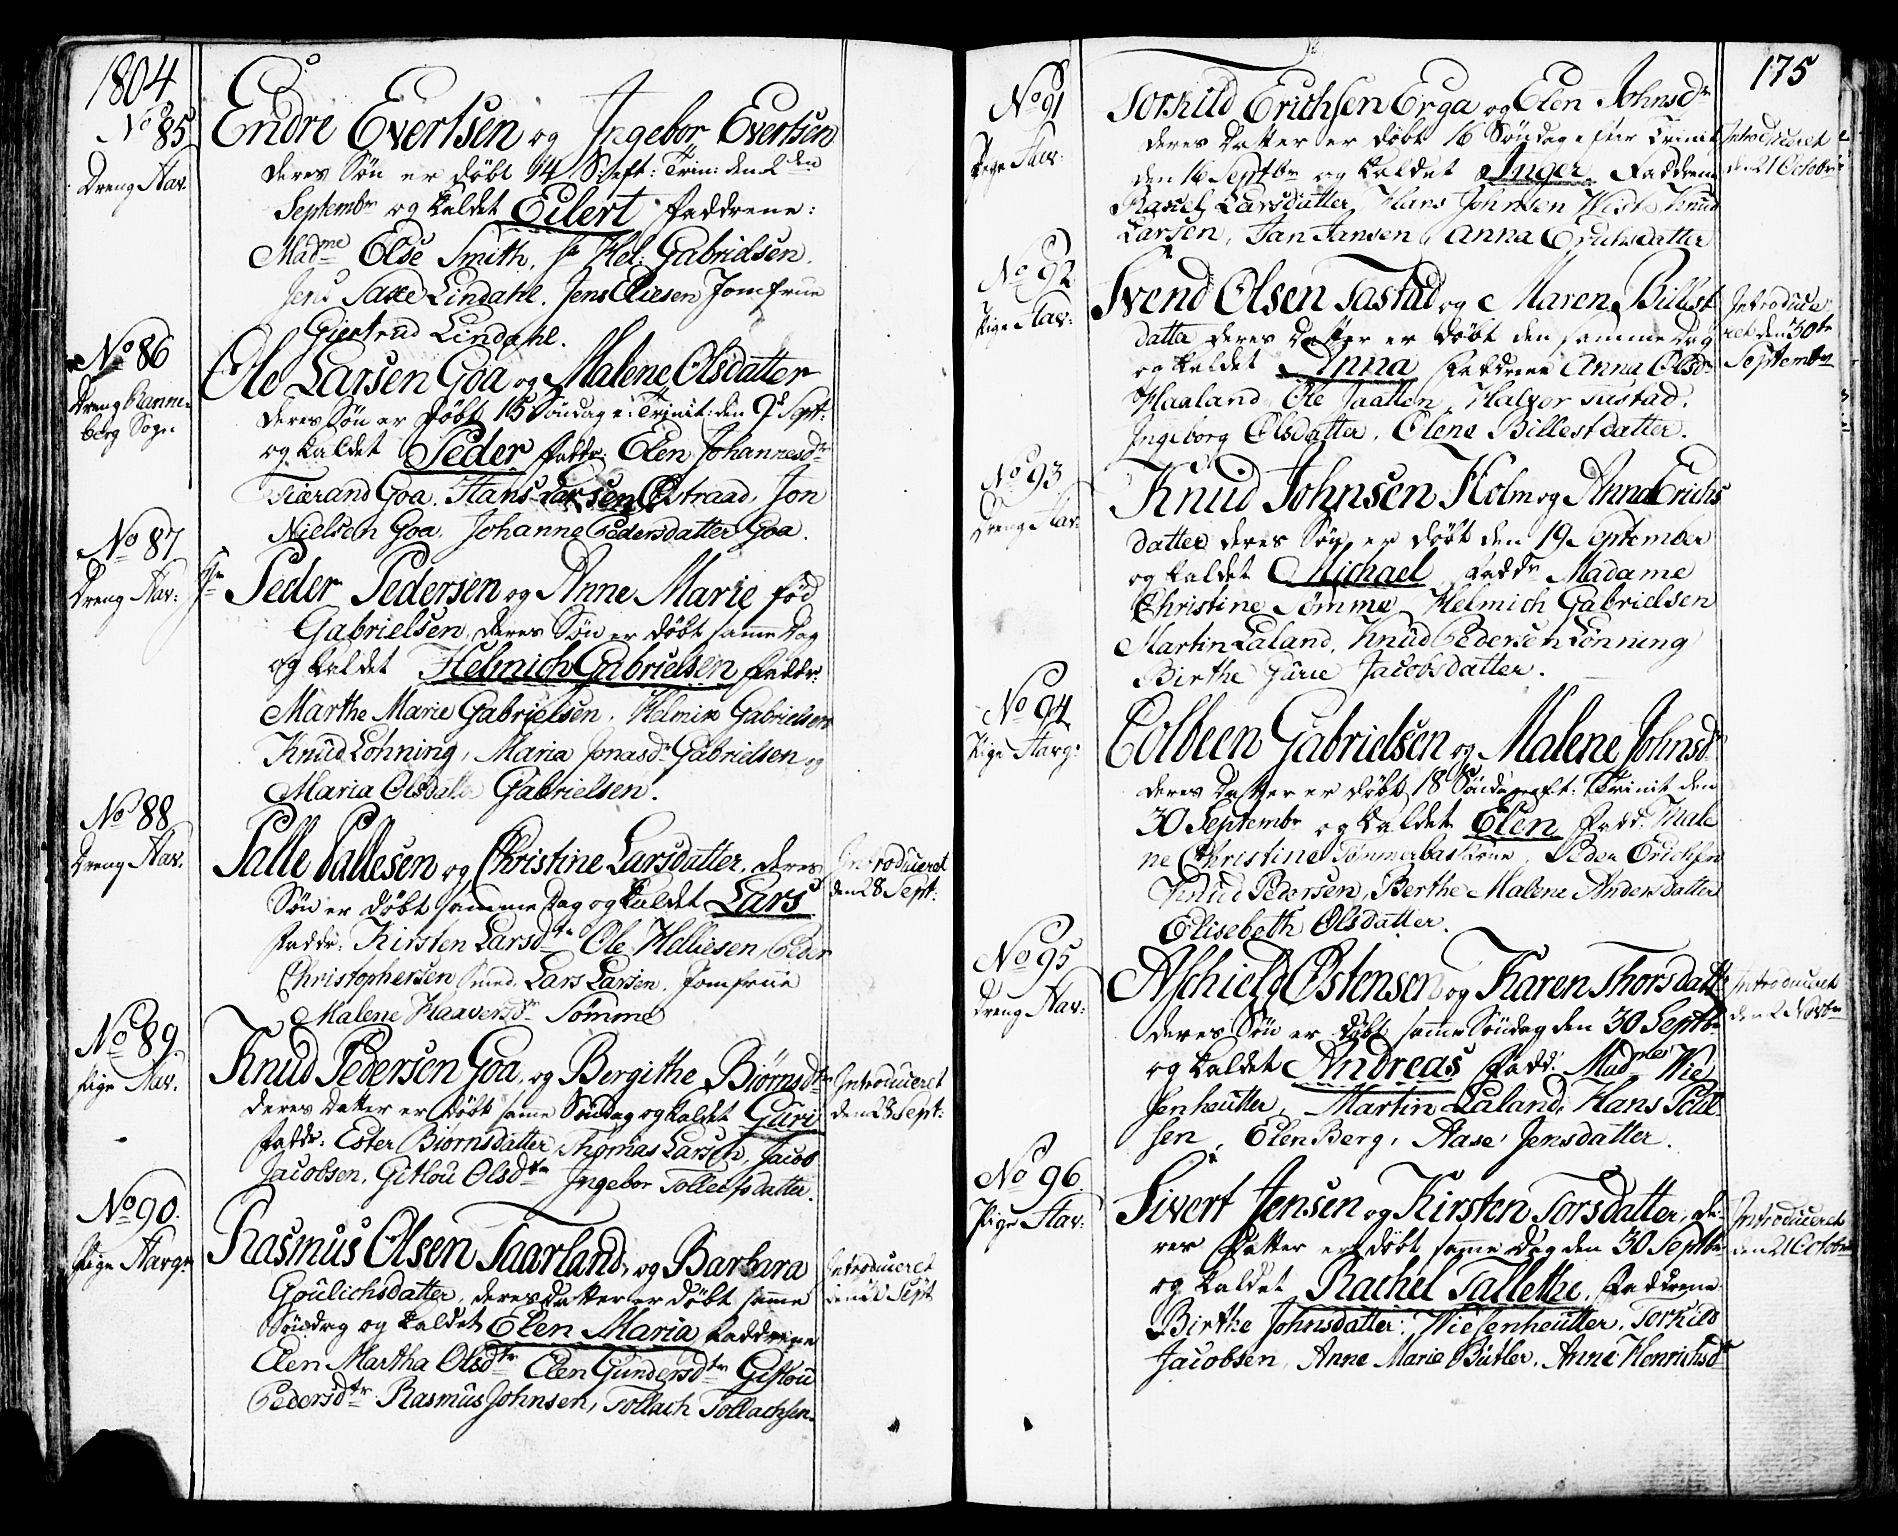 1804
No 85
Dreng Hav.
Endre Evertsen og Ingebor Evertsen
deres Søn er døbt 14 S: eft: Trin: den 2den
Septembr og kaldet Eilert Faddrene:
Madme Else Smith, Hr Hel: Gabrielsen,
Jens Saxe Lindahl. Jens Eliesen Jomfrue
Giertrud Lindahl.
No 86
Dreng Ranne-
berg Sogn
Ole Larsen Goa og Malene Olsdatter
deres Søn er døbt 15 Søndag e: Trinit: den 9d Sept:
og kaldet Peder Faddr: Elen Johannesdr
Tiærand Goa. Hans Larsen Østraad, Jon
Nielsen Goa, Johanne Pedersdatter Goa.
No 87
Dreng Hav:
Hr Peder Pedersen og Anne Marie fød
Gabrielsen, deres Søn er døbt samme Dag
og kaldet Helmich Gabrielsen Faddr:
Marthe Marie Gabrielsen, Helmik Gabrielsen
Knud Lohning, Maria Jonasdr Gabrielsen og
Maria Olsdatter Gabrielsen.
No 88
Dreng Hav.
Palle Pallesen og Christine Larsdatter, deres
Søn er døbt samme Dag og kaldet Lars
Faddr: Kirsten Larsdtr Ole Helliesen, Peder
Christophersen smed, Lars Larsen, Jomfrue
Malene Haaversdr Sømme
Introduceret
den 28 Sept:
No 89
Pige Hav.
Knud Pedersen Goa, og Bergithe Biørnsdtr
deres Datter er døbt samme Søndag og kaldet Guri
Faddr: Ester Biørnsdatter, Thomas Larsen, Jacob
Jacobsen, Gitlou Olsdtr Ingebor Tollefsdatter.
Introduceret
den 28 Sept:
No 90.
Pige Havgn
Rasmus Olsen Taarland, og Barbara
Goulichsdatter, deres datter er døbt samme
Søndag og kaldet Elen Maria Faddrene
Elen Martha Olsdtr Elen Gundersdtr Gitlou
Pedersdtr Rasmus Johnsen, Tollach Tollachsen.
Introduceret
Sept
175
No 91
Pige Hav:
Torkild Erichsen Erga og Elen Johnsdr
deres Datter er døbt 16 Søndag efter Trinit
den 16 Septbr og kaldet Inger Faddrene
Rachel Larsdatter, Hans Johnsen Wiste Knud
Larsen, Jan Jansen, Anna Erichsdatter
Introduceret
den 21 Octobr
No 92
Pige Hav:
Svend Olsen Tastad og Maren Billest
datter deres Datter er døbt den samme Dag
og kaldet Anna Faddrene Anna Olsdr
Haaland, Ole Jaatten, Halvor Tastad,
Ingeborg Olsdatter, Olene Billestdatter.
Introduce-
ret den 30te
Septembr
No 93
Dreng Hav:
Knud Johnsen Holm og Anna Erichs
datter deres Søn er døbt den 19 September
og kaldet Michael Faddr Madame
Christine Sømme, Helmich Gabrielsen
Martin Laland, Knud Pedersen Lønning
Birthe Jacobsdatter.
No 94
Pige Havg:
Colbeen Gabrielsen og Malene Johnsdr
deres Datter er døbt 18 Søndag eft: Trinit den
30 Septembr og kaldet Elen Fadd. Male
ne Christine Tømmerbastiane, Peder Erichsen
Knud Pedersen, Berthe Malene Andersdatter
Elisebeth Olsdatter.
No 95
Dreng Hav:
Aschield Østensen og Karen Thorsdattr
deres Søn er døbt samme Søndag den 30 Septbr
og kaldet Andreas Fadd: Madmes Wie
senheutter, Martin Laland, Hans Poul
sen, Elen Berg, Aase Jensdatter.
Introduceret
den 2 Novbr
No 96.
Pige Hav:
Sivert Jensen og Kirsten Torsdatter, de-
res Datter er døbt samme Dag den 30 Septbr
og kaldet Rachel Tallethe, Faddrene
Birthe Johnsdatter, Wiesenheutter, Torkild
Jacobsen, Anne Marie Butler, Anne Henrichsdtr
Introduceret
den 21 Octobr